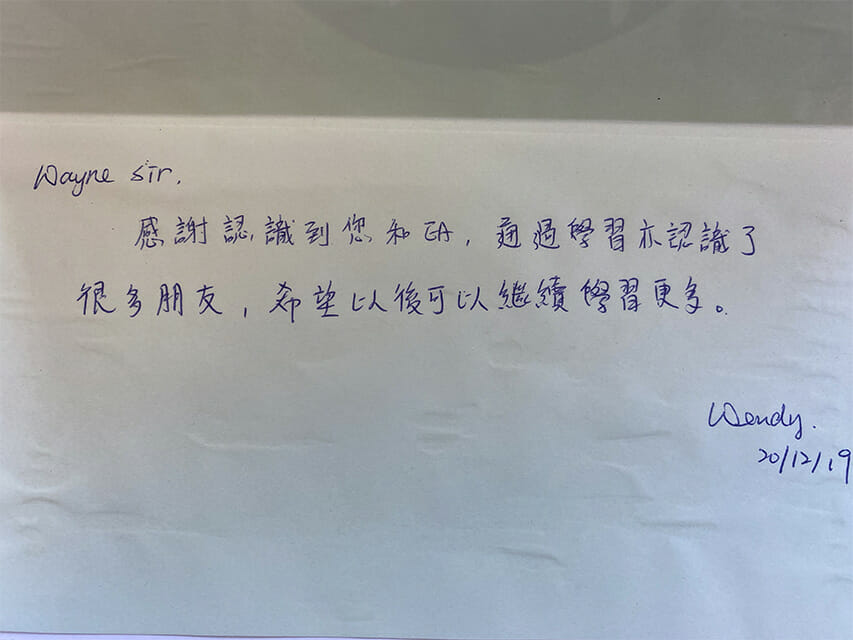 Wayne sir,
感謝認識到您和EA, 通過學習亦認識了
很多朋友, 希望以後可以繼續學習更多。
Wendy.
20/12/19